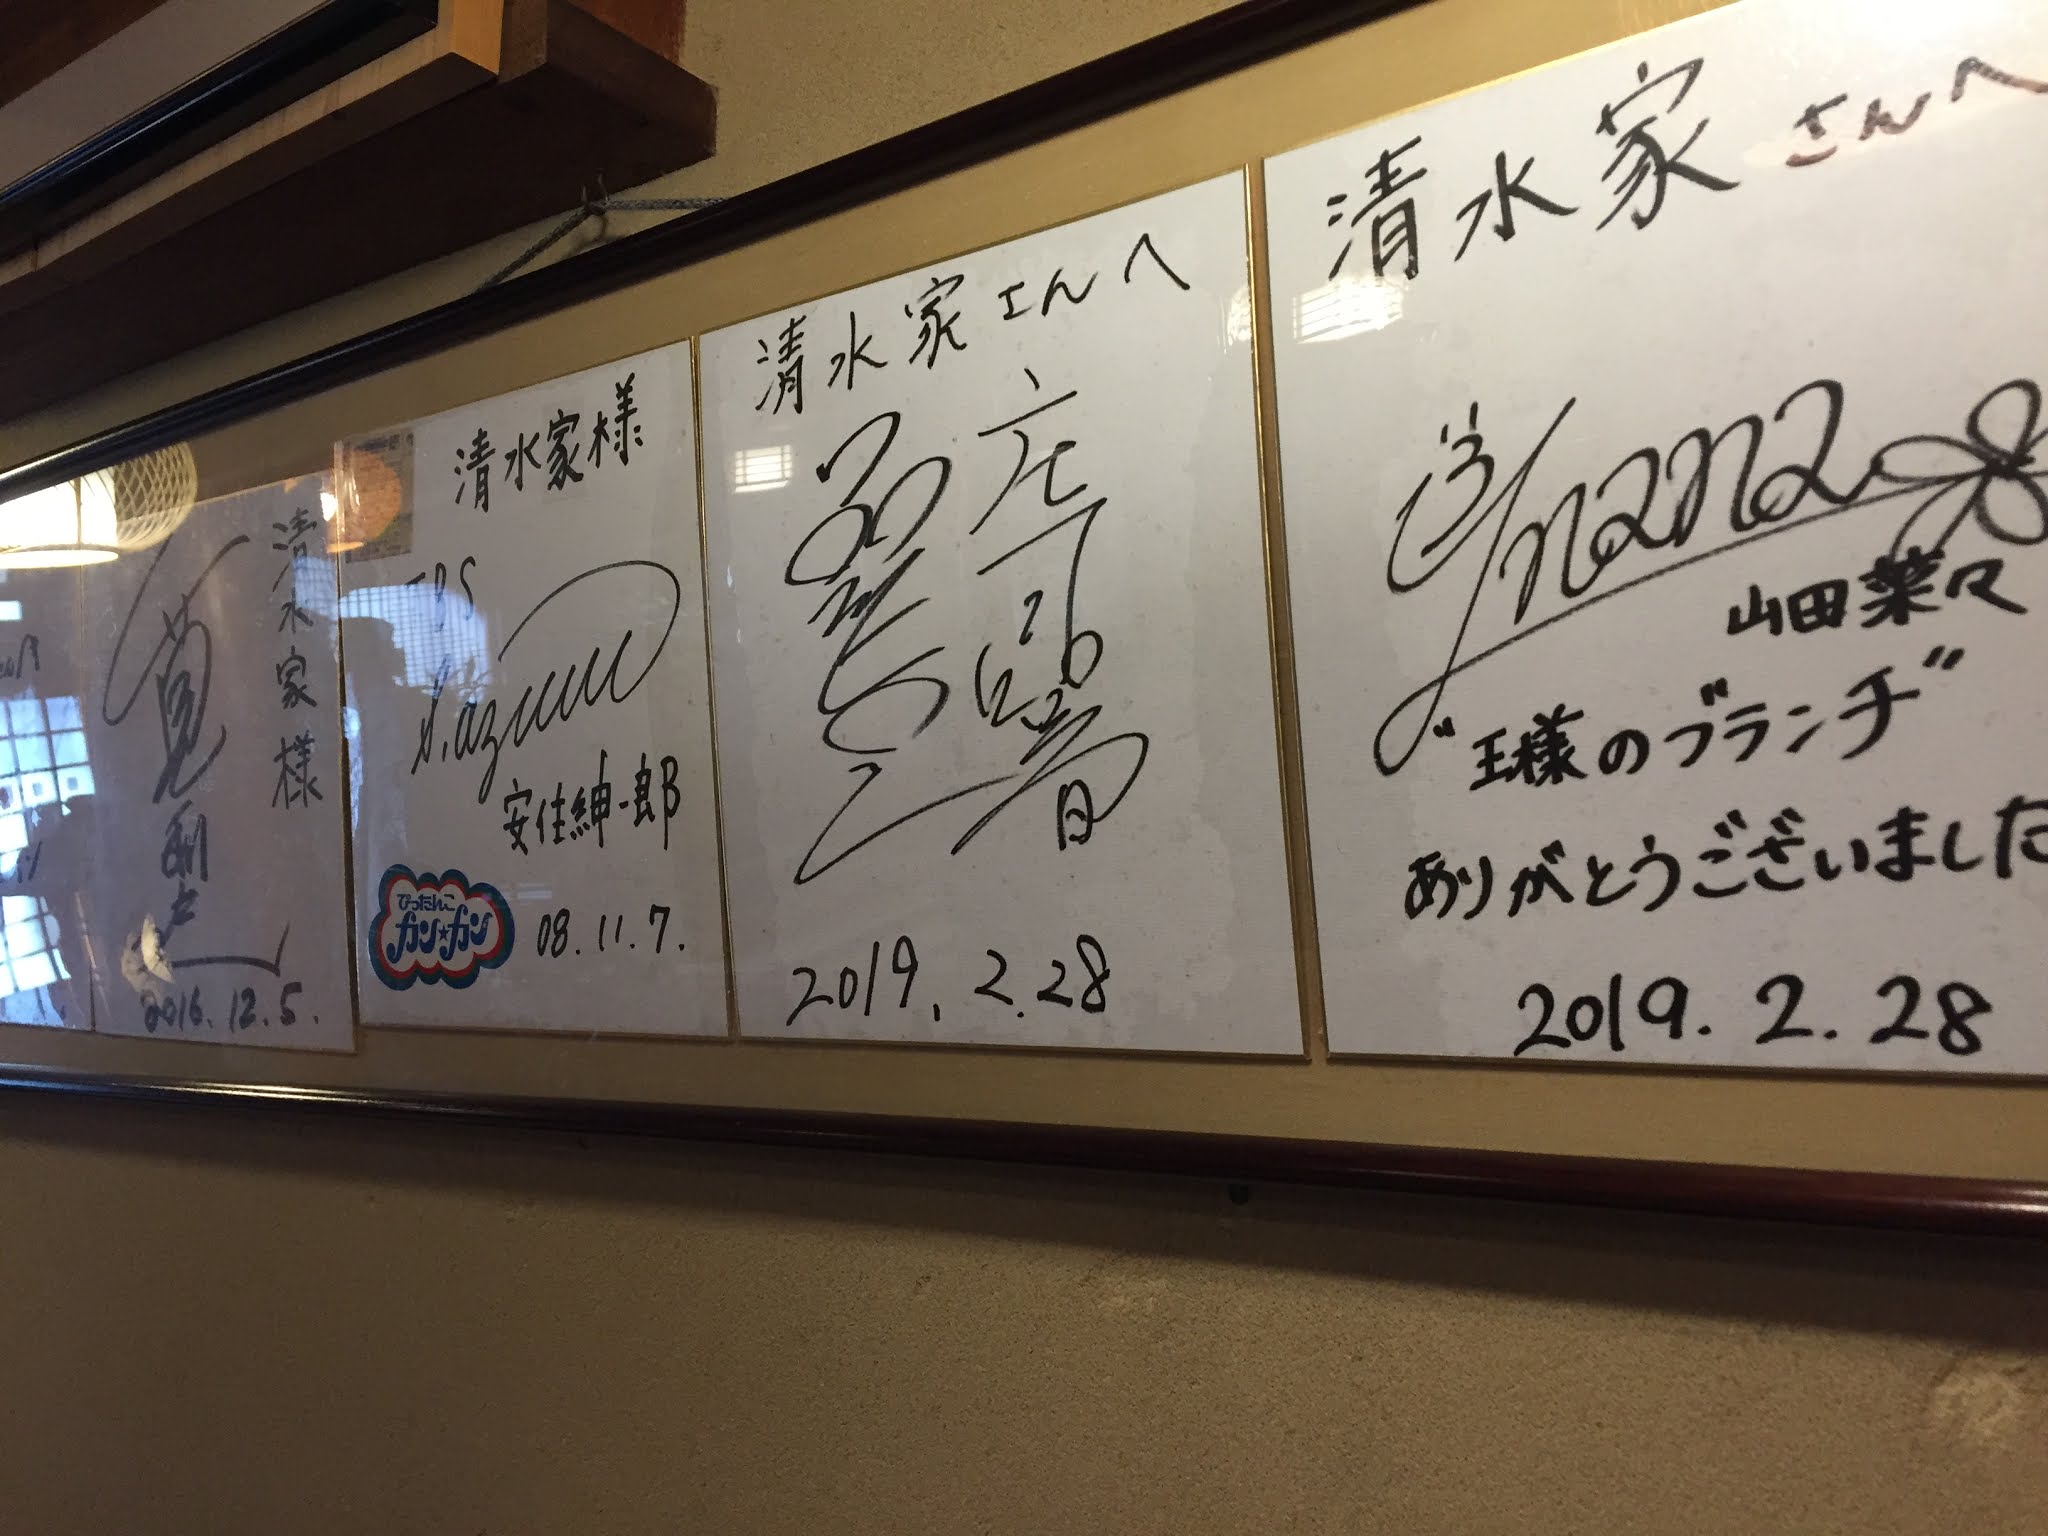 清水家様
2016.12.5.
清水家様
TBS
S.azumi
安住紳一郎
ぴったんこ
カン★カン
08.11.7.
清水家さんへ
2019.2.28
清水家さんへ
nana
山田菜々
"王様のブランチ"
ありがとうございました
2019.2.28